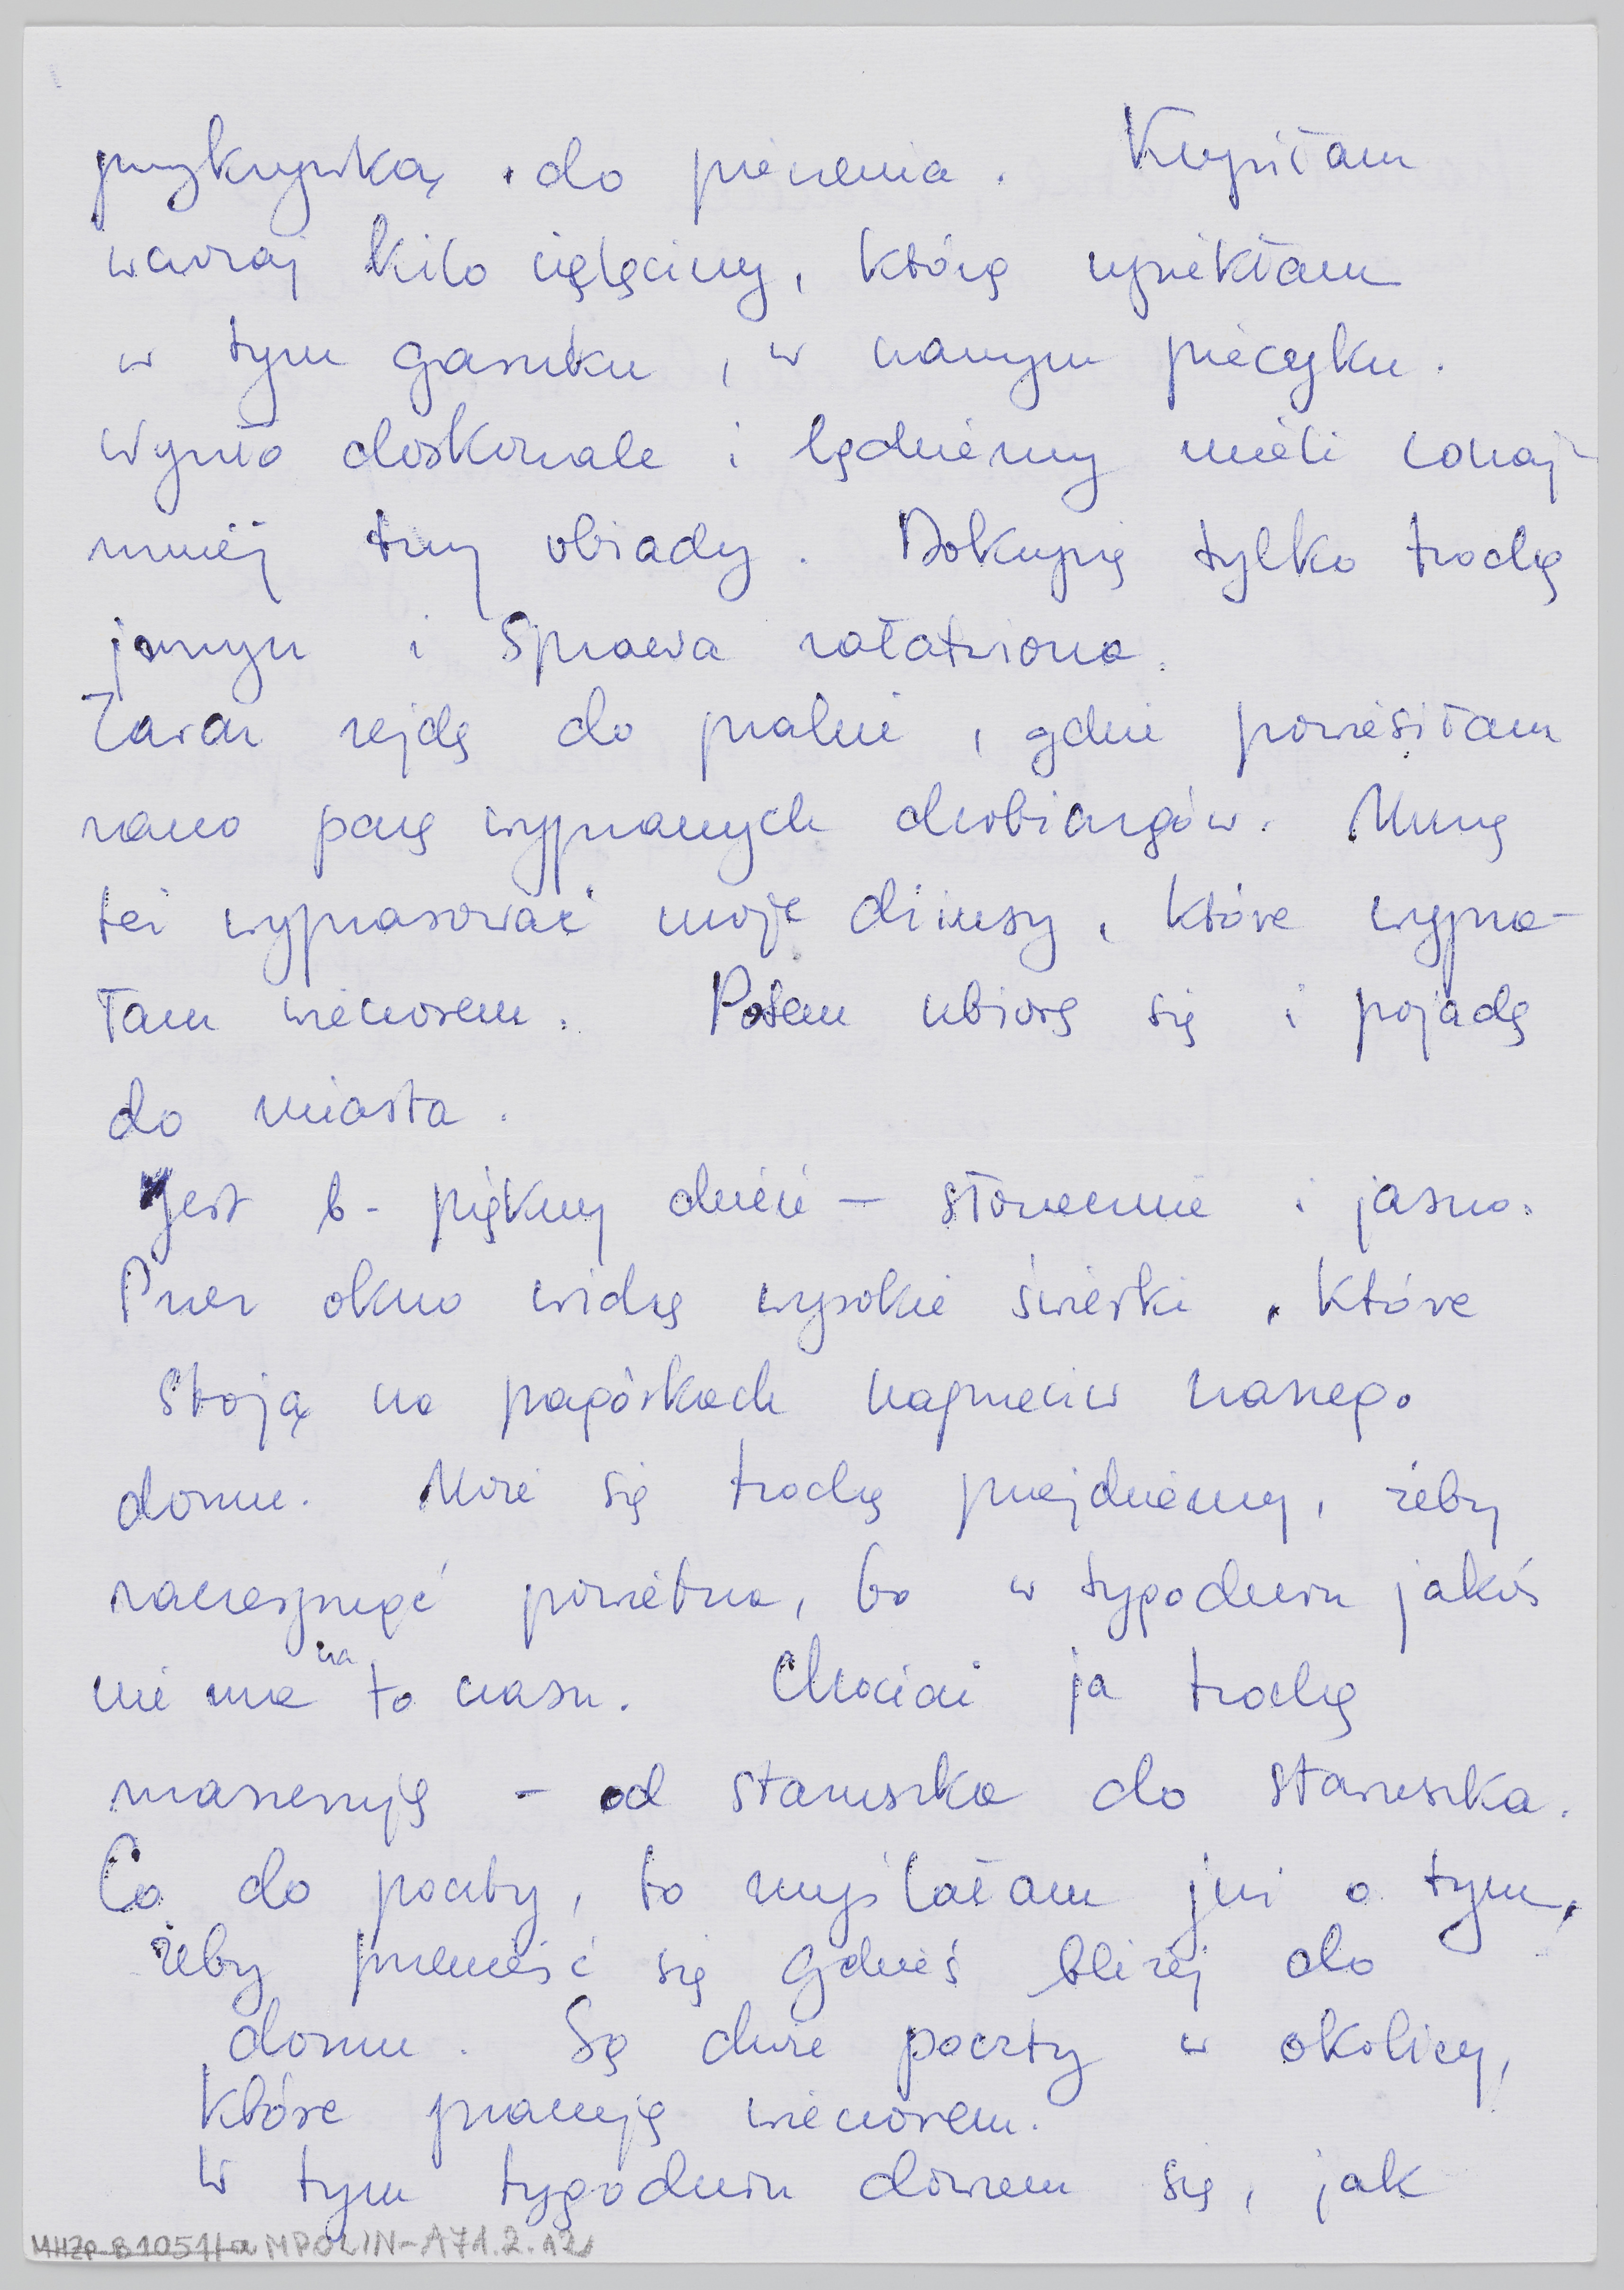 przykrywką, do pieczenia. Kupiłam
wczoraj kilo cielęciny, którą upiekłam
w tym garnku, w naszym piecyku.
Wyszło doskonale i będziemy mieli conaj-
mniej trzy obiady. Dokupię tylko trochę
jarzyn i sprawa załatwiona.
Zaraz zejdę do pralni, gdzie powiesiłam
rano parę wypranych drobiazgów. Muszę
też wyprasować moje dżinsy, które wypra-
łam wieczorem. Potem ubiorę się i pojadę
do miasta.
Jest b. piękny dzień – słonecznie i jasno.
Przez okno widzę wysokie świerki, które
stoją na pagórkach naprzeciw naszego
domu. Może się trochę przejdziemy, żeby
zaczerpnąć powietrza, bo w tygodniu jakoś
nie ma na to czasu. Chociaż ja trochę
maszeruję – od staruszka do staruszka.
Co do poczty, to myślałam już o tym,
żeby przenieść się gdzieś bliżej do
domu. Są duże poczty w okolicy,
które pracują wieczorem.
W tym tygodniu dowiem się, jak
MHŻP-B1051/1a MPOLIN-A71.2.12